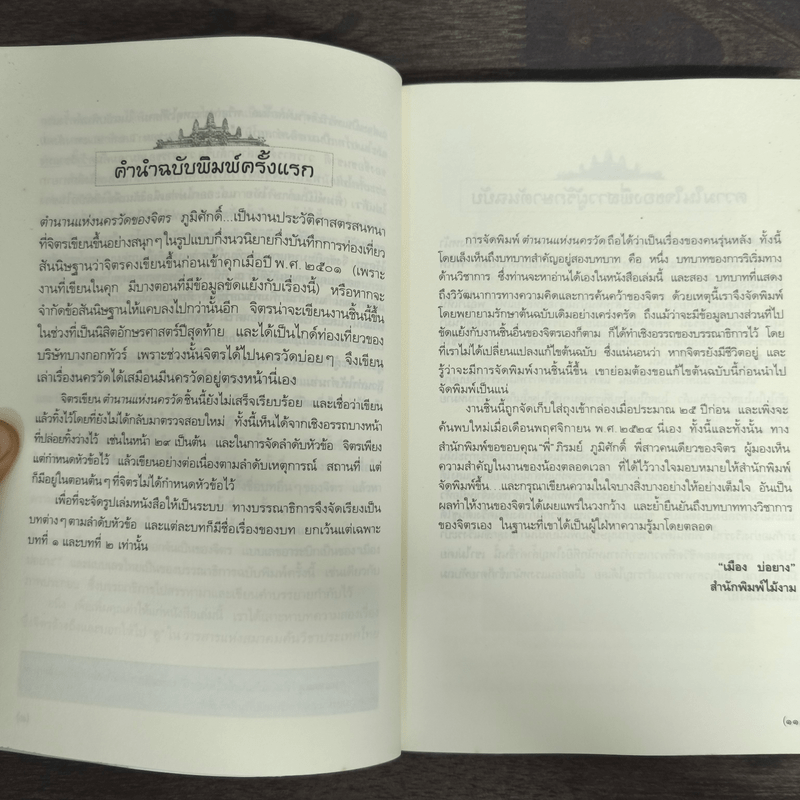 คำนำฉบับพิมพ์ครั้งแรก
ตำนานแห่งนครวัดของจิตร ภูมิศักดิ์...เป็นงานประวัติศาสตรสนทนา
ที่จิตรเขียนขึ้นอย่างสนุกๆ ในรูปแบบกึ่งนวนิยายกึ่งบันทึกการท่องเที่ยว
สันนิษฐานว่าจิตรคงเขียนขึ้นก่อนเข้าคุกเมื่อปี พ.ศ. ๒๕๐๑ (เพราะ
งานที่เขียนในคุก มีบางตอนที่มีข้อมูลขัดแย้งกับเรื่องนี้) หรือหากจะ
จำกัดข้อสันนิษฐานให้แคบลงไปกว่านั้นอีก จิตรน่าจะเขียนงานชิ้นนี้ขึ้น
ในช่วงที่เป็นนิสิตอักษรศาสตร์ปีสุดท้าย และได้เป็นไกด์ท่องเที่ยวของ
บริษัทบางกอกทัวร์ เพราะช่วงนั้นจิตรได้ไปนครวัดบ่อยๆ จึงเขียน
เล่าเรื่องนครวัดได้เสมือนมีนครวัดอยู่ตรงหน้านี่เอง
จิตรเขียน ตำนานแห่งนครวัด ชิ้นนี้ยังไม่เสร็จเรียบร้อย และเชื่อว่าเขียน
แล้วทิ้งไว้โดยที่ยังไม่ได้กลับมาตรวจสอบใหม่ ทั้งนี้เห็นได้จากเชิงอรรถบางหน้า
ที่ปล่อยทิ้งว่างไว้ เช่นในหน้า ๒๙ เป็นต้น และในการจัดลำดับหัวข้อ จิตรเพียง
แต่กำหนดหัวข้อไว้ แล้วเขียนอย่างต่อเนื่องตามลำดับเหตุการณ์ สถานที่ แต่
ก็มีอยู่ในตอนต้นๆ ที่จิตรไม่ได้กำหนดหัวข้อไว้
เพื่อที่จะจัดรูปเล่มหนังสือให้เป็นระบบ ทางบรรณาธิการจึงจัดเรียงเป็น
บทต่างๆ ตามลำดับหัวข้อ และแต่ละบทก็มีชื่อเรื่องของบท ยกเว้นแต่เฉพาะ
บทที่ ๑ และบทที่ ๒ เท่านั้น
การจัดพิมพ์ ตำนานแห่งนครวัด ถือได้ว่าเป็นเรื่องของคนรุ่นหลัง ทั้งนี้
โดยเล็งเห็นถึงบทบาทสำคัญอยู่สองบทบาท คือ หนึ่ง บทบาทของการริเริ่มทาง
ด้านวิชาการ ซึ่งท่านจะหาอ่านได้เองในหนังสือเล่มนี้ และสอง บทบาทที่แสดง
ถึงวิวัฒนาการทางความคิดและการค้นคว้าของจิตร ด้วยเหตุนี้เราจึงจัดพิมพ์
โดยพยายามรักษาต้นฉบับเดิมอย่างเคร่งครัด ถึงแม้ว่าจะมีข้อมูลบางส่วนที่ไป
ขัดแย้งกับงานชิ้นอื่นของจิตรเองก็ตาม ก็ได้ทำเชิงอรรถของบรรณาธิการไว้ โดย
ที่เราไม่ได้เปลี่ยนแปลงแก้ไขต้นฉบับ ซึ่งแน่นอนว่า หากจิตรยังมีชีวิตอยู่ และ
รู้ว่าจะมีการจัดพิมพ์งานชิ้นนี้ขึ้น เขาย่อมต้องขอแก้ไขต้นฉบับนี้ก่อนนำไป
จัดพิมพ์เป็นแน่
งานชิ้นนี้ถูกจัดเก็บใส่ถุงเข้ากล่องเมื่อประมาณ ๒๕ ปีก่อน และเพิ่งจะ
ค้นพบใหม่เมื่อเดือนพฤศจิกายน พ.ศ. ๒๕๒๔ นี่เอง ทั้งนี้และทั้งนั้น ทาง
สำนักพิมพ์ขอขอบคุณ “พี่” ภิรมย์ ภูมิศักดิ์ พี่สาวคนเดียวของจิตร ผู้มองเห็น
ความสำคัญในงานของน้องตลอดเวลา ที่ได้ไว้วางใจมอบหมายให้สำนักพิมพ์
จัดพิมพ์ขึ้น...และกรุณาเขียนความในใจบางสิ่งบางอย่างให้อย่างเต็มใจ อันเป็น
ผลทำให้งานของจิตรได้เผยแพร่ในวงกว้าง และย้ำยืนยันถึงบทบาททางวิชาการ
ของจิตรเอง ในฐานะที่เขาได้เป็นผู้ใฝ่หาความรู้มาโดยตลอด
“เมือง บ่อยาง”
สำนักพิมพ์ไม้งาม
(๑๑